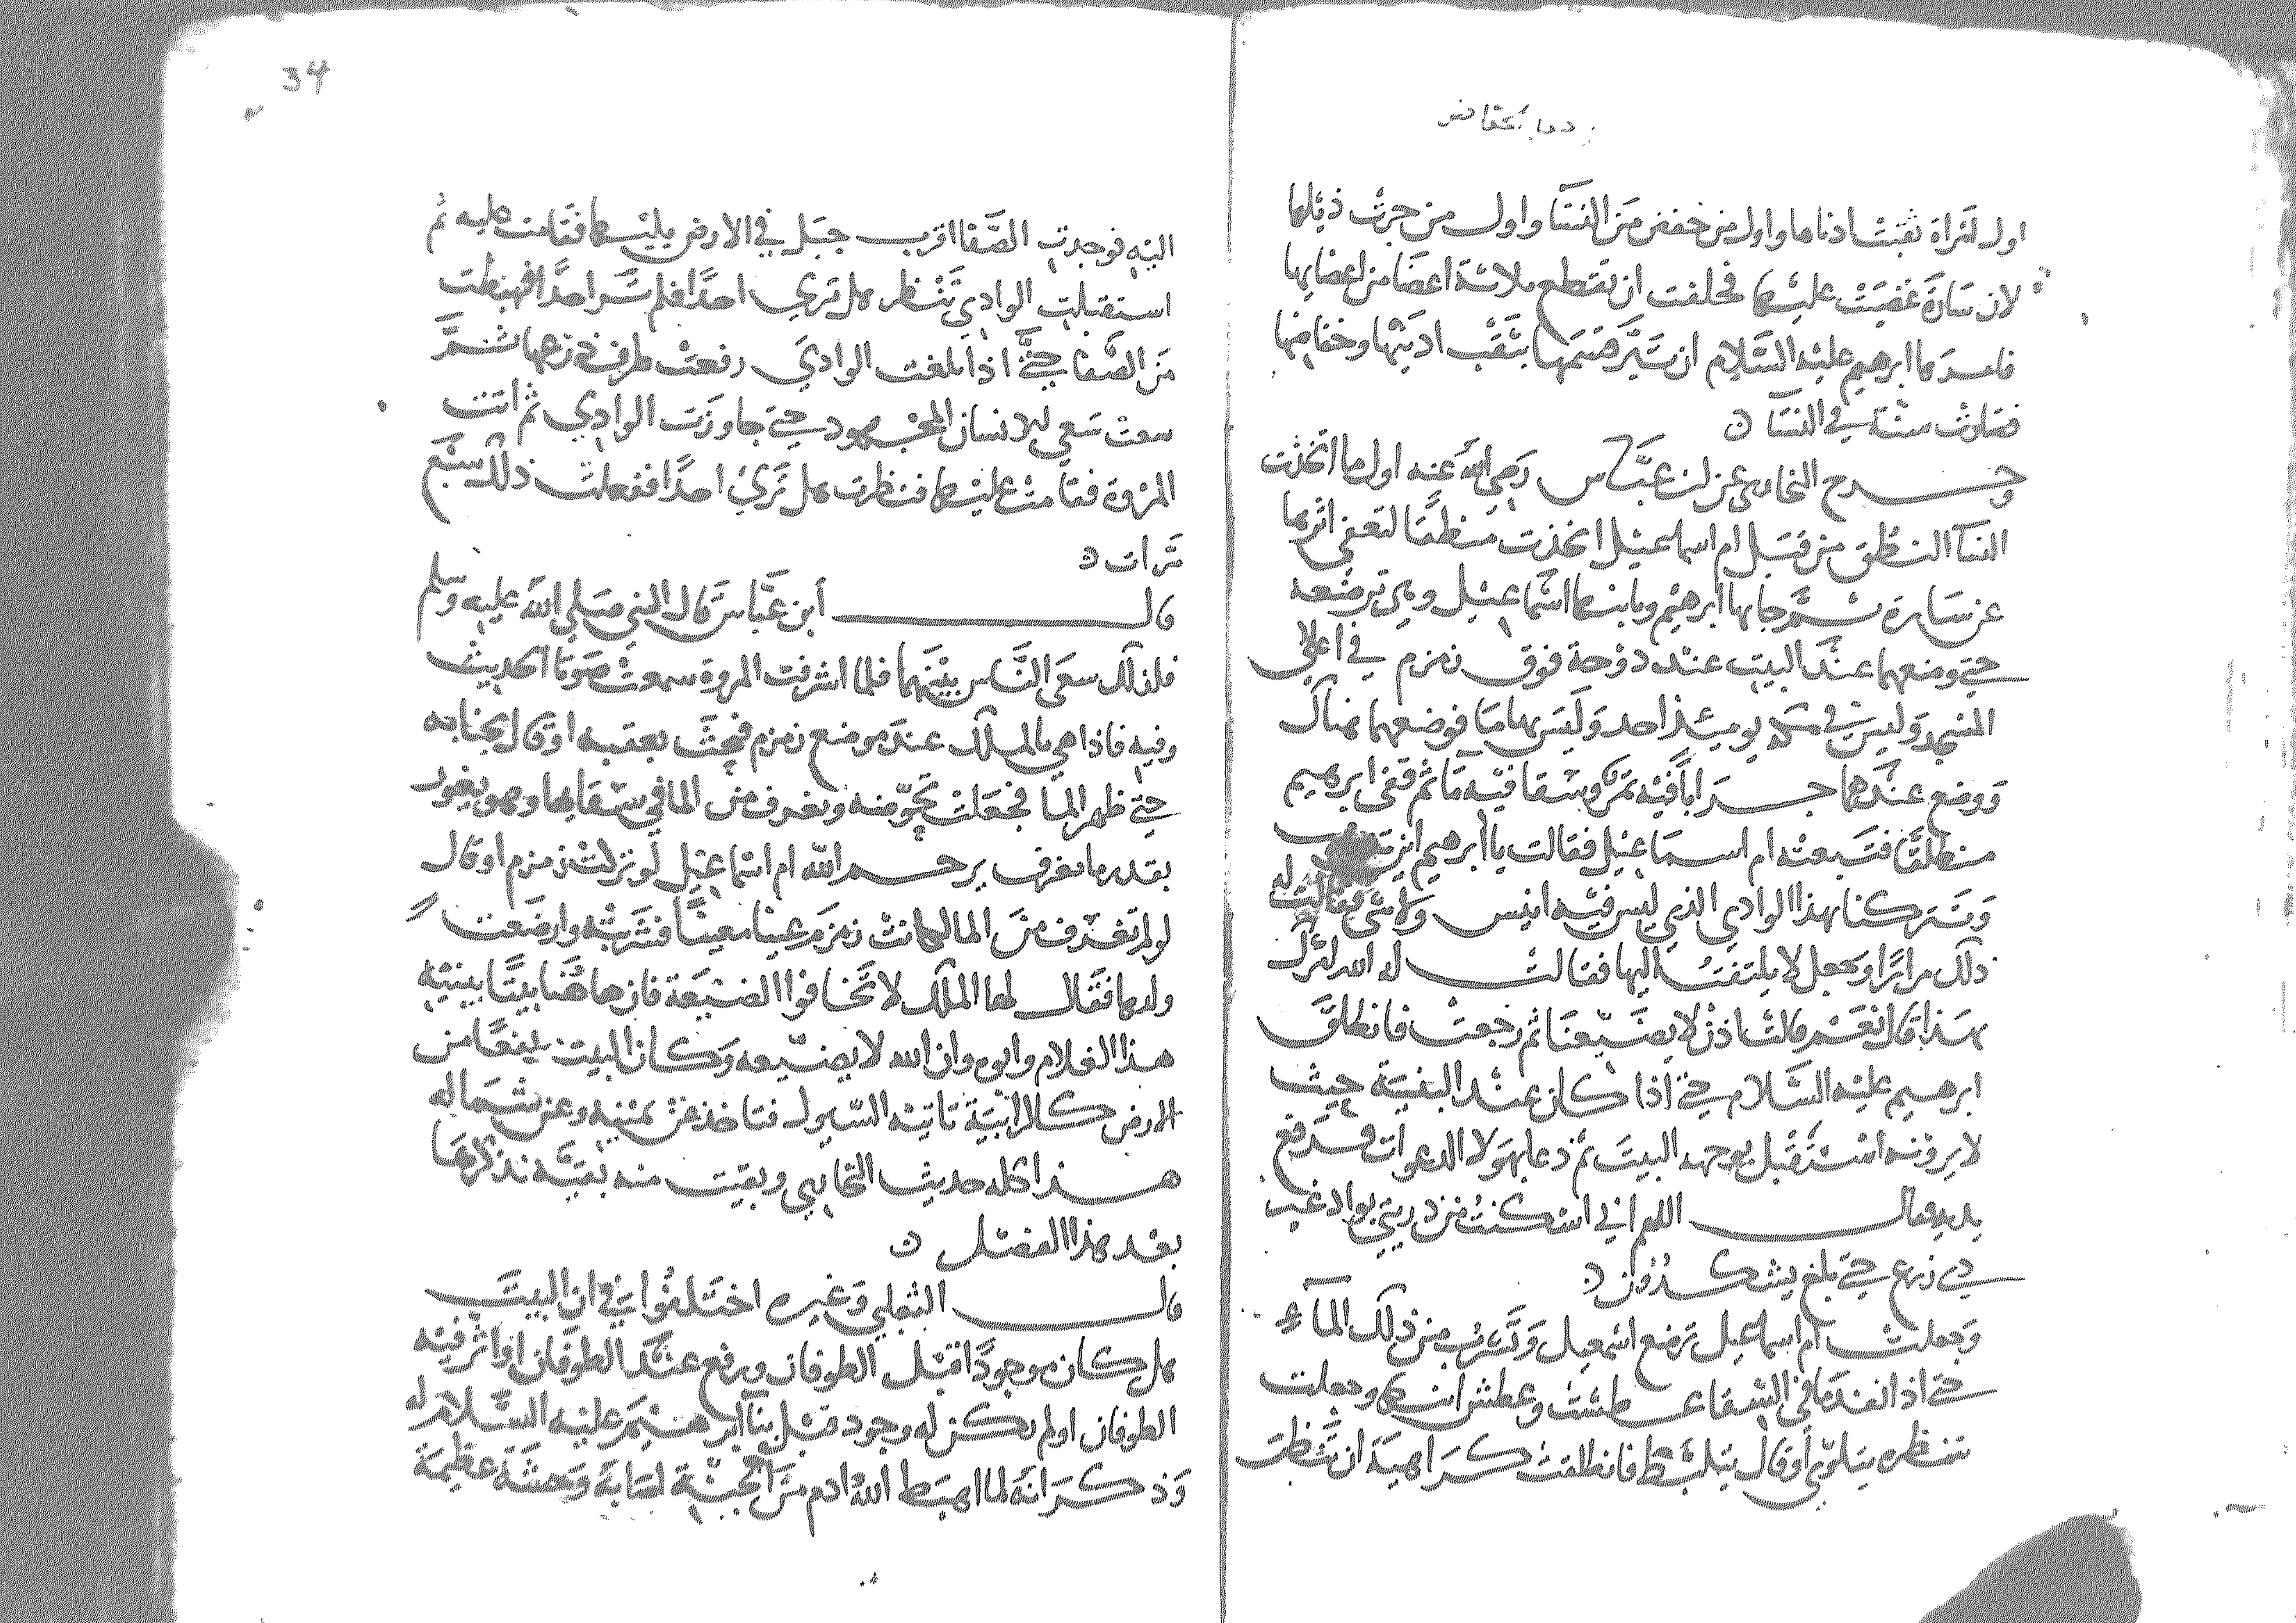 اول امراة ثقبت اذناها واول من خفض من النسا واول من جرت ذيلها
لان سارة غضبت عليها فحلفت ان تقطع ثلاثة اعضا من اعضايها
فامرها ابرهيم عليه السلام ان تبر قسمها بثقب اذنيها وخفاضها
فصارت سنة في النسا
وخرج البخاري عن ابن عباس رضي الله عنه اول ما اتخذت
النسا المنطق من قبل ام اسماعيل اتخذت منطقا لتعفي اثرها
عن سارة ثم جا بها ابرهيم وبابنها اسماعيل وهي ترضعه
حتى وضعهما عند البيت عند دوحة فوق زمزم في اعلى
المسجد وليس في مكة يوميئذ احد وليس بها ما فوضعهما هنالك
ووضع عندهما جرابا فيه تمر وسقا فيه ما ثم قفى ابرهيم
منطلقا فتبعته ام اسماعيل فقالت يا ابرهيم اين تذهب
وتتركنا بهذا الوادي الذي ليس فيه انيس ولا شي فقالت له
ذلك مرارا وجعل لا يلتفت اليها فقالت له الله امرك
بهذا قال نعم قالت اذن لا يضيعنا ثم رجعت فانطلق
ابرهيم عليه السلام حتى اذا كان عند الثنية حيث
لا يرونه استقبل بوجهه البيت ثم دعا بهولا الدعوات ورفع
يديه فقال اللهم اني اسكنت من ذريتي بواد غير
ذي زرع حتى بلغ يشكرون
وجعلت ام اسماعيل ترضع اسمعيل وتشرب من ذلك الماء
حتى اذا نفد ما في السقا عطشت وعطش ابنها وجعلت
تنظره يتلوى او قال يتلبط فانطلقت كراهية ان تنظر
اليه فوجدت الصفا اقرب جبل في الارض يليها فقامت عليه ثم
استقبلت الوادي تنظر هل ترى احدا فلم تر احدا فهبطت
من الصفا حتى اذا بلغت الوادي رفعت طرف درعها ثم
سعت سعي الانسان المجهود حتى جاوزت الوادي ثم اتت
المروة فقامت عليها فنظرت هل ترى احدا ففعلت ذلك سبع
مرات
قال أبن عباس قال النبي صلى الله عليه وسلم
فلذلك سعى الناس بينهما فلما اشرفت المروة سمعت صوتا الحديث
وفيه فاذا هي بالملك عند موضع زمزم فبحث بعقبه او قال بجناحه
حتى ظهر الما فجعلت تحوضه وتغرف من الما في سقايها وهو يفور
بقدر ما تغرف يرحم الله ام اسماعيل لو تركت زمزم او قال
لو لم تغرف من الما لكانت زمزم عينا معينا فشربت وارضعت
ولدها فقال لها الملك لا تخافوا الضيعة فان هاهنا بيتا يبنيه
هذا الغلام وابوه وان الله لا يضيعه وكان البيت مرتفعا من
الارض كالرابية تاتيه السيول فتاخذ عن يمينه وعن شماله
هذا كله حديث البخاري وبقيت منه بقية نذكرها
بعد هذا الفصل
قال الثعلبي وغيره اختلفوا في ان البيت
هل كان موجودا قبل الطوفان ورفع عند الطوفان او اثر فيه
الطوفان او لم يكن له وجود قبل بنا ابرهيم عليه السلام له
وذكر انه لما اهبط الله ادم من الجنة اصابه وحشة عظيمة
34